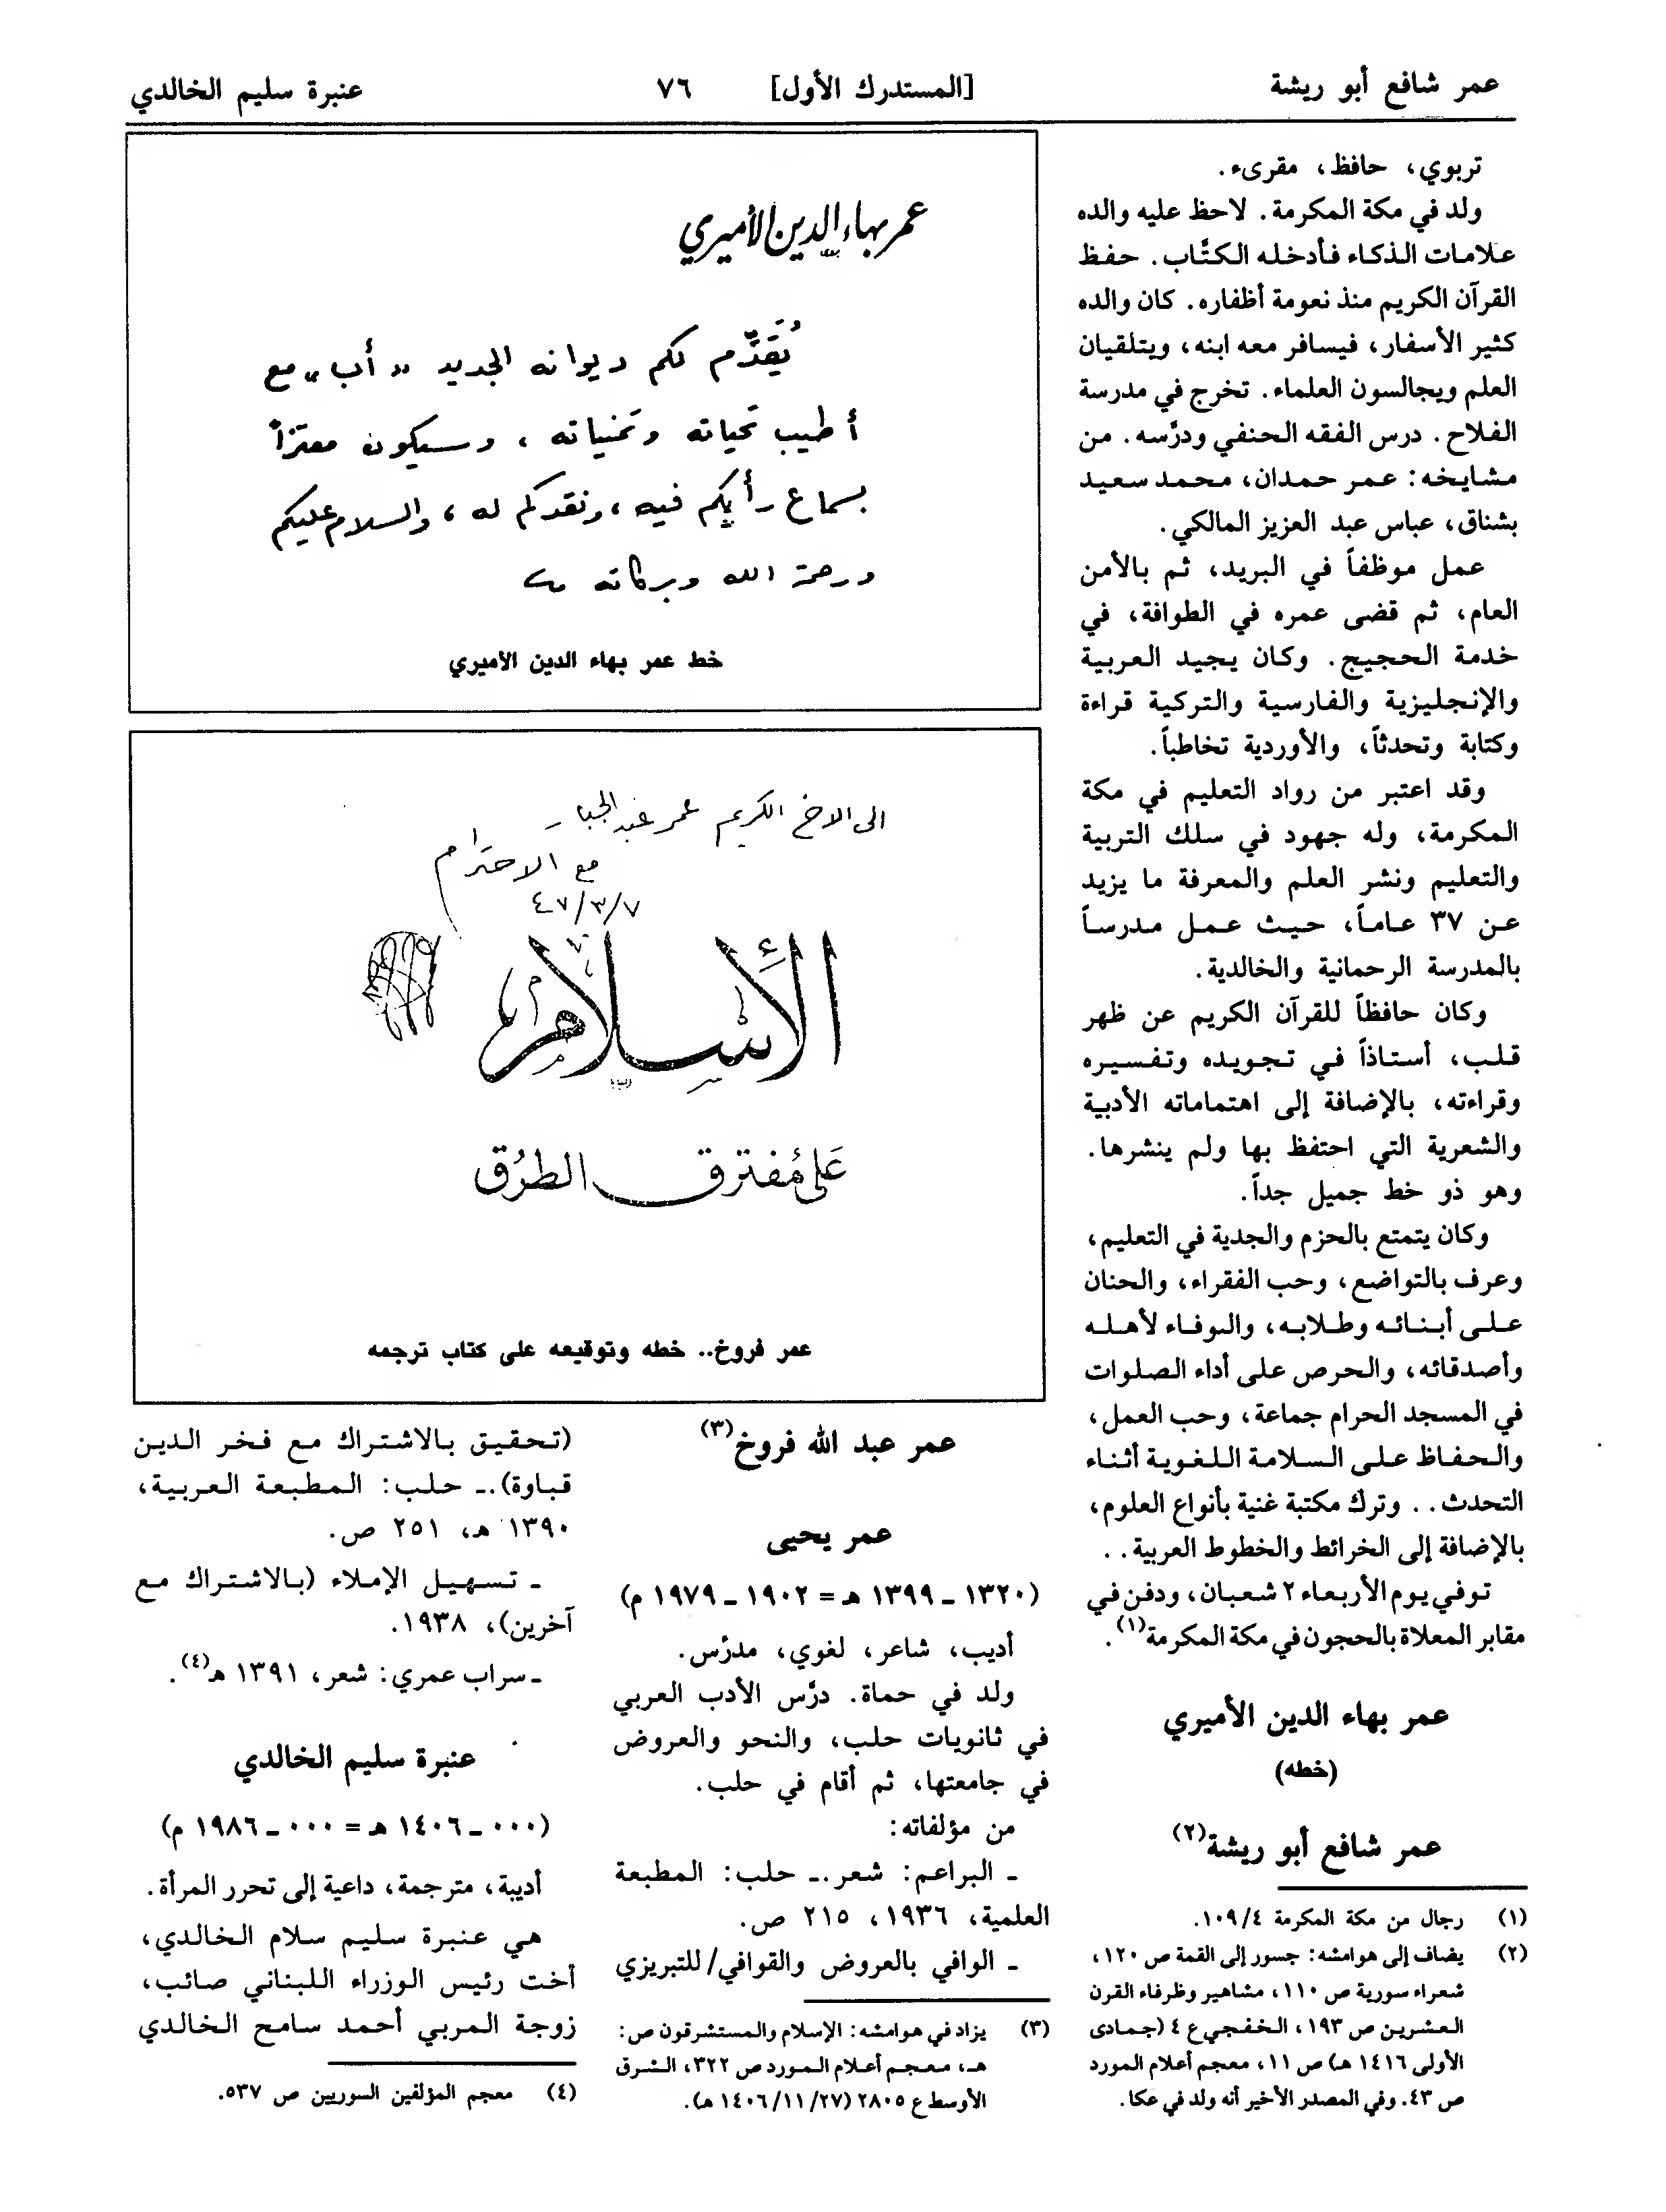 عمر شافع أبو ريشة [المستدرك الأول] ٧٦ عنبرة سليم الخالدي
تربوي، حافظ، مقرىء.
ولد في مكة المكرمة. لاحظ عليه والده
علامات الذكاء فأدخله الكتَّاب. حفظ
القرآن الكريم منذ نعومة أظفاره. كان والده
كثير الأسفار، فيسافر معه ابنه، ويتلقيان
العلم ويجالسون العلماء. تخرج في مدرسة
الفلاح. درس الفقه الحنفي ودرَّسه. من
مشايخه: عمر حمدان، محمد سعيد
بشناق، عباس عبد العزيز المالكي.
عمل موظفاً في البريد، ثم بالأمن
العام، ثم قضى عمره في الطوافة، في
خدمة الحجيج. وكان يجيد العربية
والإنجليزية والفارسية والتركية قراءة
وكتابة وتحدثاً، والأوردية تخاطباً.
وقد اعتبر من رواد التعليم في مكة
المكرمة، وله جهود في سلك التربية
والتعليم ونشر العلم والمعرفة ما يزيد
عن ٣٧ عاماً، حيث عمل مدرساً
بالمدرسة الرحمانية والخالدية.
وكان حافظاً للقرآن الكريم عن ظهر
قلب، أستاذاً في تجويده وتفسيره
وقراءته، بالإضافة إلى اهتماماته الأدبية
والشعرية التي احتفظ بها ولم ينشرها.
وهو ذو خط جميل جداً.
وكان يتمتع بالحزم والجدية في التعليم،
وعرف بالتواضع، وحب الفقراء، والحنان
على أبنائه وطلابه، والوفاء لأهله
وأصدقائه، والحرص على أداء الصلوات
في المسجد الحرام جماعة، وحب العمل،
والحفاظ على السلامة اللغوية أثناء
التحدث.. وترك مكتبة غنية بأنواع العلوم،
بالإضافة إلى الخرائط والخطوط العربية..
توفي يوم الأربعاء ٢ شعبان، ودفن في
مقابر المعلاة بالحجون في مكة المكرمة(١).
عمر بهاء الدين الأميري
(خطه)
عمر شافع أبو ريشة(٢)
(١) رجال من مكة المكرمة ١٠٩/٤.
(٢) يضاف إلى هوامشه: جسور إلى القمة ص ١٢٠،
شعراء سورية ص ١١٠، مشاهير وظرفاء القرن
العشرين ص ١٩٣، الخفجي ع ٤ (جمادى
الأولى ١٤١٦ هـ) ص ١١، معجم أعلام المورد
ص ٤٣. وفي المصدر الأخير أنه ولد في عكا.
عمر بهاء الدين الأميري
يُقَدِّم لكم ديوانه الجديد «أب» مع
أطيب تحياته وتمنياته، وسيكون معتزاً
بسماع رأيكم فيه، ونقدكم له، والسلام عليكم
ورحمة الله وبركاته
خط عمر بهاء الدين الأميري
الى الاخ الكريم عمر عبد الجبار
مع الاحترام
٤٧/٣/٧
الإسلام
عَلى مُفترق الطرُق
عمر فروخ.. خطه وتوقيعه على كتاب ترجمه
عمر عبد الله فروخ(٣)
عمر يحيى
(١٣٢٠ ـ ١٣٩٩ هـ = ١٩٠٢ ـ ١٩٧٩ م)
أديب، شاعر، لغوي، مدرِّس.
ولد في حماة. درَّس الأدب العربي
في ثانويات حلب، والنحو والعروض
في جامعتها، ثم أقام في حلب.
من مؤلفاته:
ـ البراعم: شعر.ـ حلب: المطبعة
العلمية، ١٩٣٦، ٢١٥ ص.
ـ الوافي بالعروض والقوافي/ للتبريزي
(٣) يزاد في هوامشه: الإسلام والمستشرقون ص:
هـ، معجم أعلام المورد ص ٣٢٢، الشرق
الأوسط ع ٢٨٠٥ (١٤٠٦/١١/٢٧ هـ).
(تحقيق بالاشتراك مع فخر الدين
قباوة).ـ حلب: المطبعة العربية،
١٣٩٠ هـ، ٢٥١ ص.
ـ تسهيل الإملاء (بالاشتراك مع
آخرين)، ١٩٣٨.
ـ سراب عمري: شعر، ١٣٩١ هـ(٤).
عنبرة سليم الخالدي
(٠٠٠ ـ ١٤٠٦ هـ = ٠٠٠ ـ ١٩٨٦ م)
أديبة، مترجمة، داعية إلى تحرر المرأة.
هي عنبرة سليم سلام الخالدي،
أخت رئيس الوزراء اللبناني صائب،
زوجة المربي أحمد سامح الخالدي
(٤) معجم المؤلفين السوريين ص ٥٣٧.